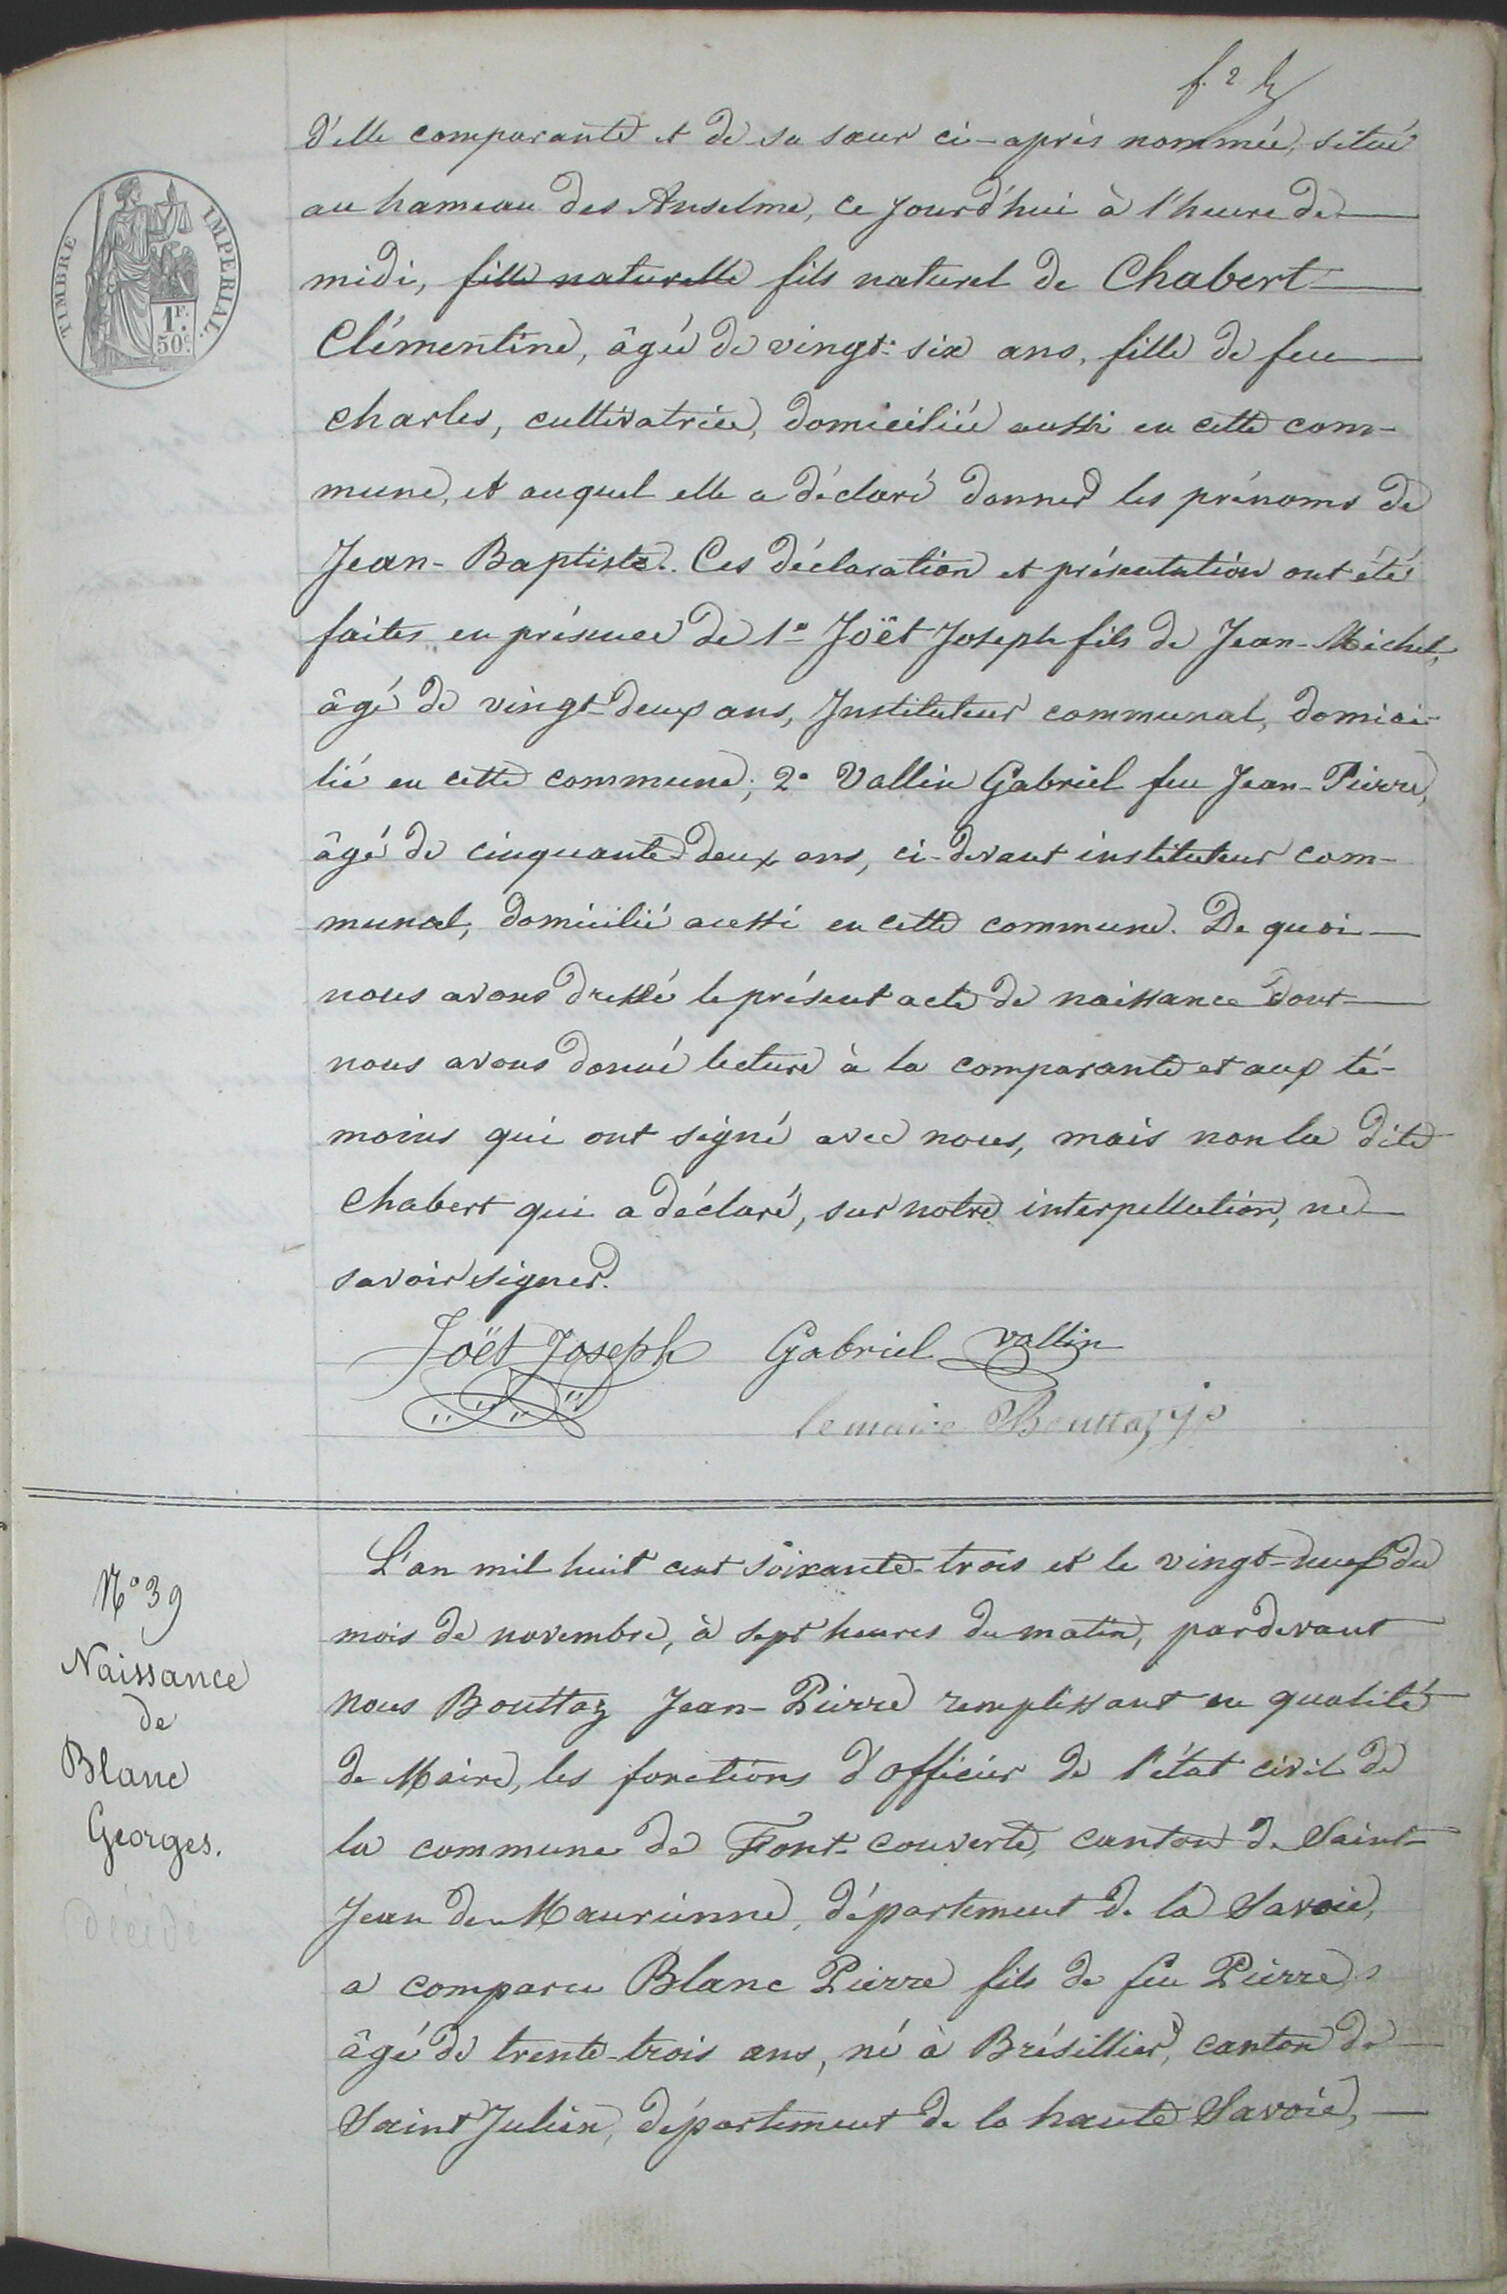 d'elle comparante et de sa sœur ci-après nommée, situé
au hameau des Anselme, ce jourd'hui à l'heure de
midi, fille naturelle fils naturel de Chabert
Clémentine, âgée de vingt-six ans, fille de feu
Charles, cultivatrice, domiciliée aussi en cette com-
mune, et auquel elle a déclaré donner les prénoms de
Jean-Baptiste. Ces déclaration et présentation ont été
faites en présence de 1° Joët Joseph fils de Jean-Michel,
âgé de vingt-deux ans, Instituteur communal, domici-
lié en cette commune; 2° Vallin Gabriel feu Jean-Pierre,
âgé de cinquante-deux ans, ci-devant instituteur com-
munal, domicilié aussi en cette commune. De quoi
nous avons dressé le présent acte de naissance dont
nous avons donné lecture à la comparante et aux té-
moins qui ont signé avec nous, mais non la dite
Chabert qui a déclaré, sur notre interpellation, ne
savoir signer.
Joët Joseph Gabriel Vallin
le maire Bouttaz J P
TIMBRE IMPÉRIAL.
1F.
50c.
N° 39
Naissance
de
Blanc
Georges.
décédé
L'an mil huit cent soixante-trois et le vingt-neuf du
mois de novembre, à sept heures du matin, pardevant
nous Bouttaz Jean-Pierre remplissant en qualité
de Maire, les fonctions d'officier de l'état civil de
la commune de Font-couverte, canton de Saint-
Jean de Maurienne, département de la Savoie,
a comparu Blanc Pierre fils de feu Pierre,
âgé de trente-trois ans, né à Brésillier, canton de
Saint Julien, département de la haute Savoie,